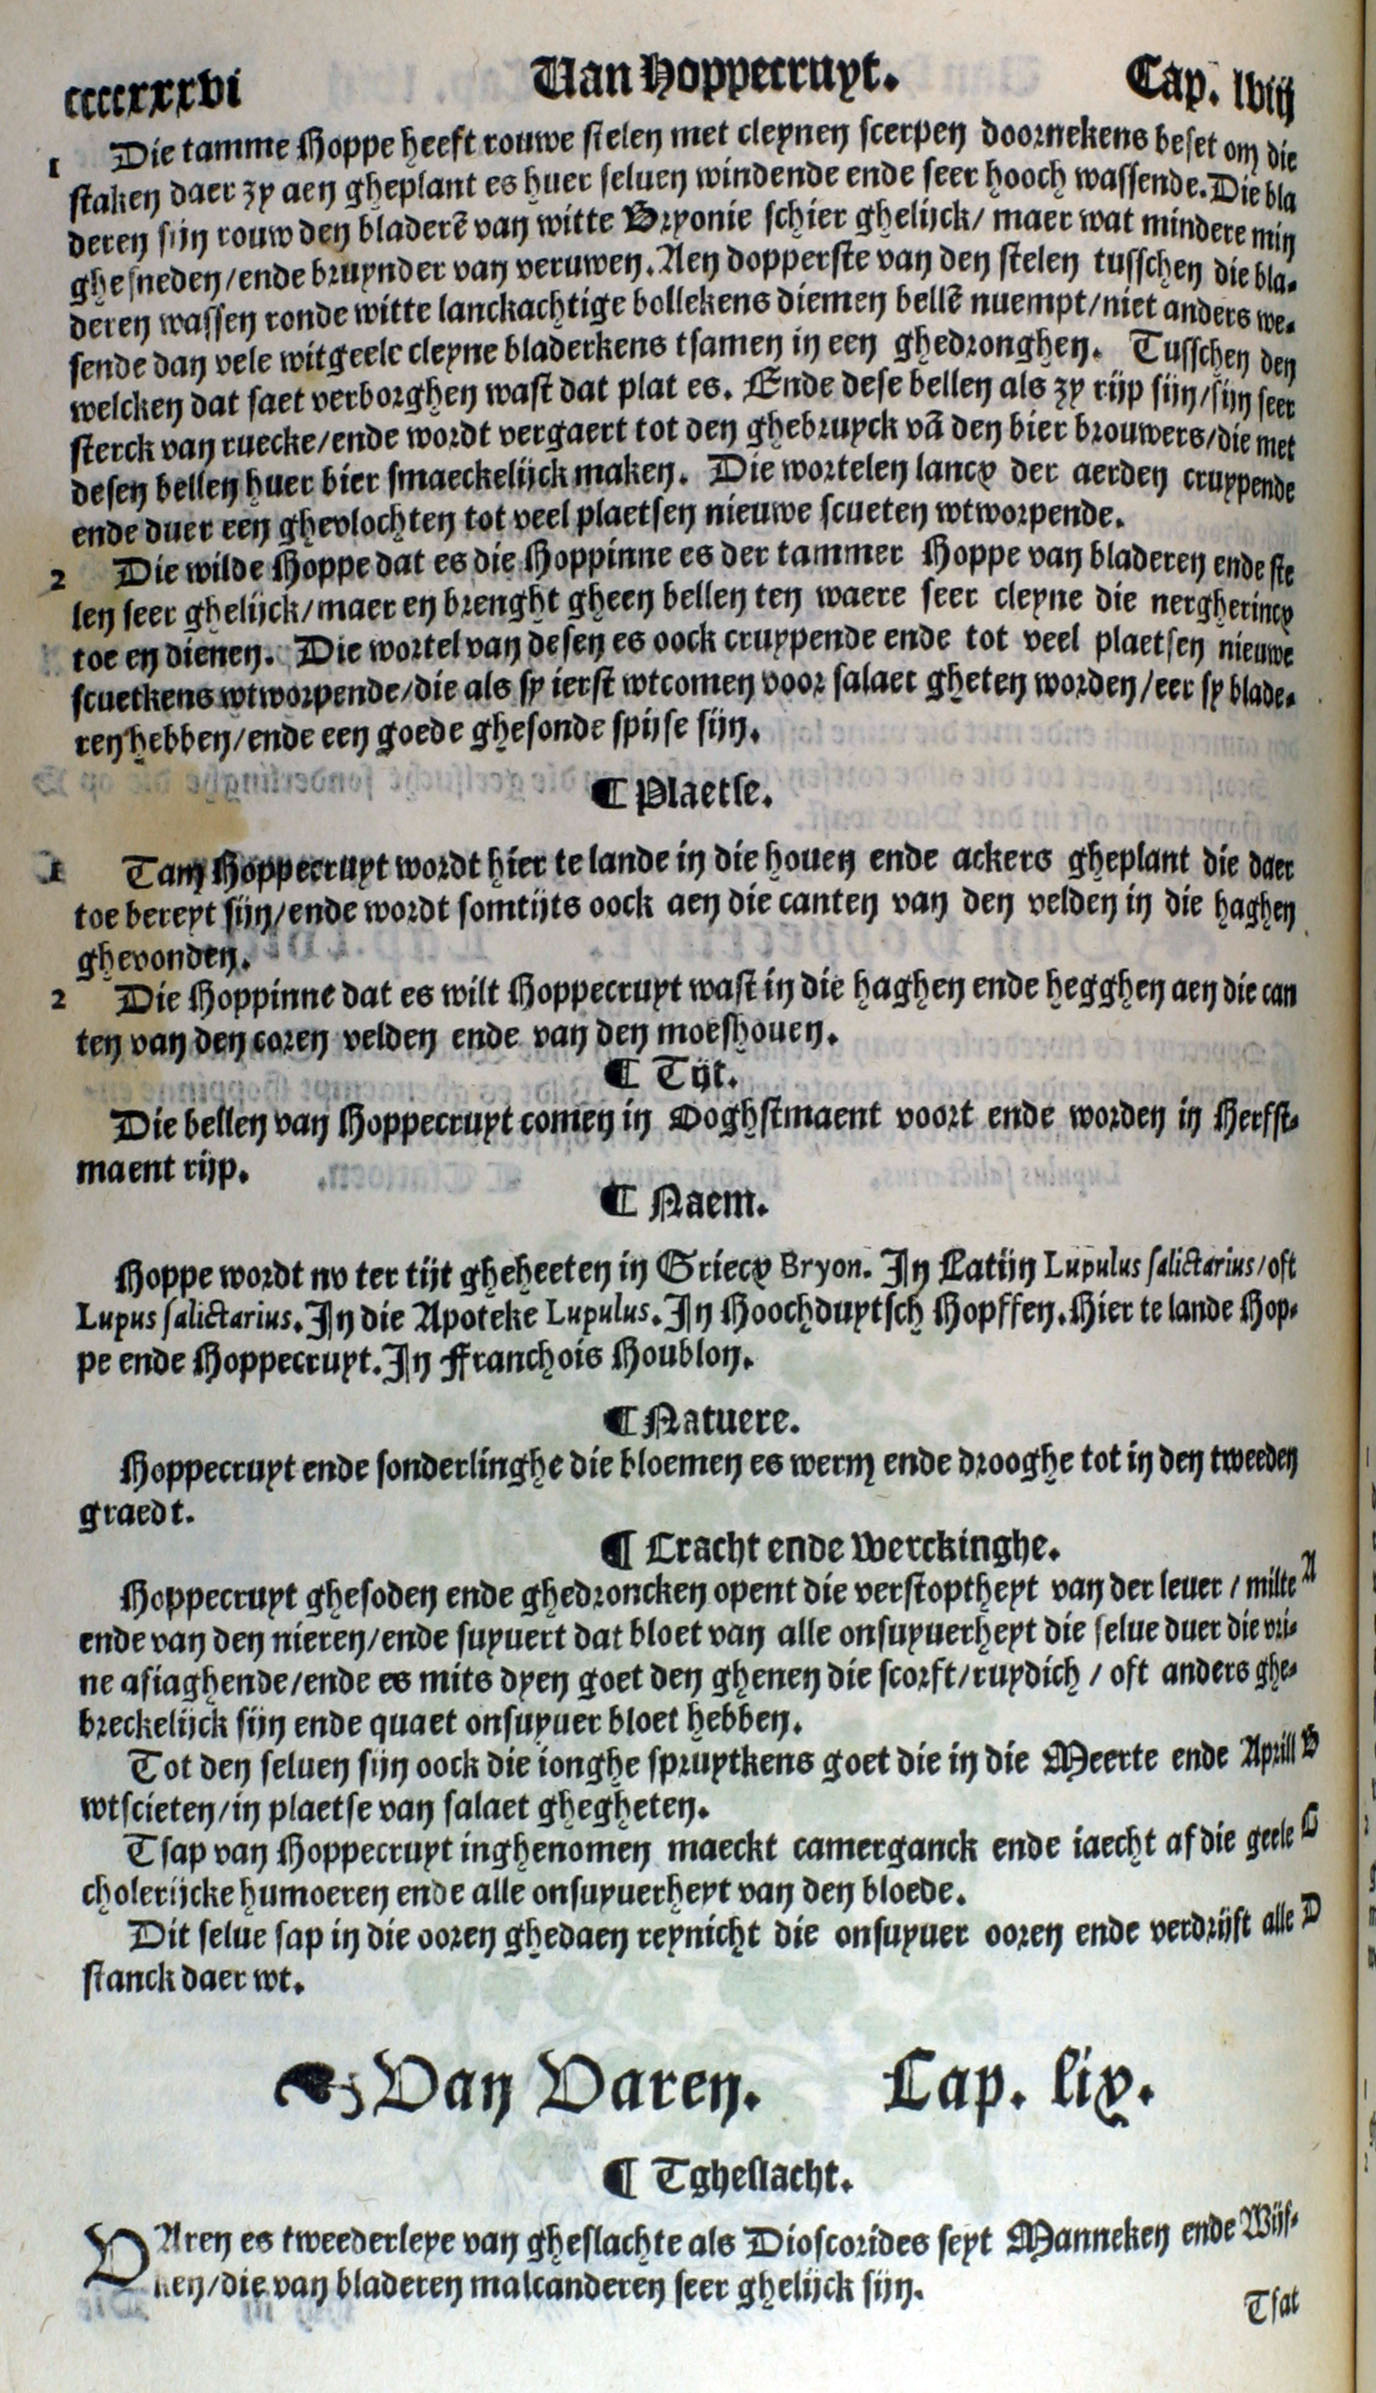 ccccxxxvi Van Hoppecruyt. Cap. lviij
1 Die tamme Hoppe heeft rouwe stelen met cleynen scerpen doornekens beset om die
staken daer zy aen gheplant es huer seluen windende ende seer hooch wassende. Die bla
deren sijn rouw den bladerē van witte Bryonie schier ghelijck/ maer wat mindere min
ghesneden/ende bruynder van veruwen. Aen dopperste van den stelen tusschen die bla-
deren wassen ronde witte lanckachtige bollekens diemen bellē nuempt/niet anders we-
sende dan vele witgeele cleyne bladerkens tsamen in een ghedronghen. Tusschen den
welcken dat saet verborghen wast dat plat es. Ende dese bellen als zy rijp sijn/sijn seer
sterck van ruecke/ende wordt vergaert tot den ghebruyck vā den bier brouwers/die met
desen bellen huer bier smaeckelijck maken. Die wortelen lancx der aerden cruypende
ende duer een ghevlochten tot veel plaetsen nieuwe scueten wtworpende.
2 Die wilde Hoppe dat es die Hoppinne es der tammer Hoppe van bladeren ende ste
len seer ghelijck/maer en brenght gheen bellen ten waere seer cleyne die nergherincx
toe en dienen. Die wortel van desen es oock cruypende ende tot veel plaetsen nieuwe
scuetkens wtworpende/die als sy ierst wtcomen voor salaet gheten worden/eer sy blade-
ren hebben/ende een goede ghesonde spijse sijn.
¶ Plaetse.
1 Tam Hoppecruyt wordt hier te lande in die houen ende ackers gheplant die daer
toe bereyt sijn/ende wordt somtijts oock aen die canten van den velden in die haghen
ghevonden.
2 Die Hoppinne dat es wilt Hoppecruyt wast in die haghen ende hegghen aen die can
ten van den coren velden ende van den moeshouen.
¶ Tijt.
Die bellen van Hoppecruyt comen in Ooghstmaent voort ende worden in Herfst-
maent rijp.
¶ Naem.
Hoppe wordt nv ter tijt gheheeten in Griecx Bryon. In Latijn Lupulus salictarius/oft
Lupus salictarius. In die Apoteke Lupulus. In Hoochduytsch Hopffen. Hier te lande Hop-
pe ende Hoppecruyt. In Franchois Houblon.
¶ Natuere.
Hoppecruyt ende sonderlinghe die bloemen es werm ende drooghe tot in den tweeden
graedt.
¶ Cracht ende Werckinghe.
Hoppecruyt ghesoden ende ghedroncken opent die verstoptheyt van der leuer / milte A
ende van den nieren/ende suyuert dat bloet van alle onsuyuerheyt die selue duer die vri-
ne afiaghende/ende es mits dyen goet den ghenen die scorft/ruydich / oft anders ghe-
breckelijck sijn ende quaet onsuyuer bloet hebben.
Tot den seluen sijn oock die ionghe spruytkens goet die in die Meerte ende Aprill B
wtscieten/in plaetse van salaet ghegheten.
Tsap van Hoppecruyt inghenomen maeckt camerganck ende iaecht af die geele C
cholerijcke humoeren ende alle onsuyuerheyt van den bloede.
Dit selue sap in die ooren ghedaen reynicht die onsuyuer ooren ende verdrijft alle D
stanck daer wt.
☙ Van Varen. Cap. lix.
¶ Tgheslacht.
VAren es tweederleye van gheslachte als Dioscorides seyt Manneken ende Wijf-
ken/die van bladeren malcanderen seer ghelijck sijn.
Tsat